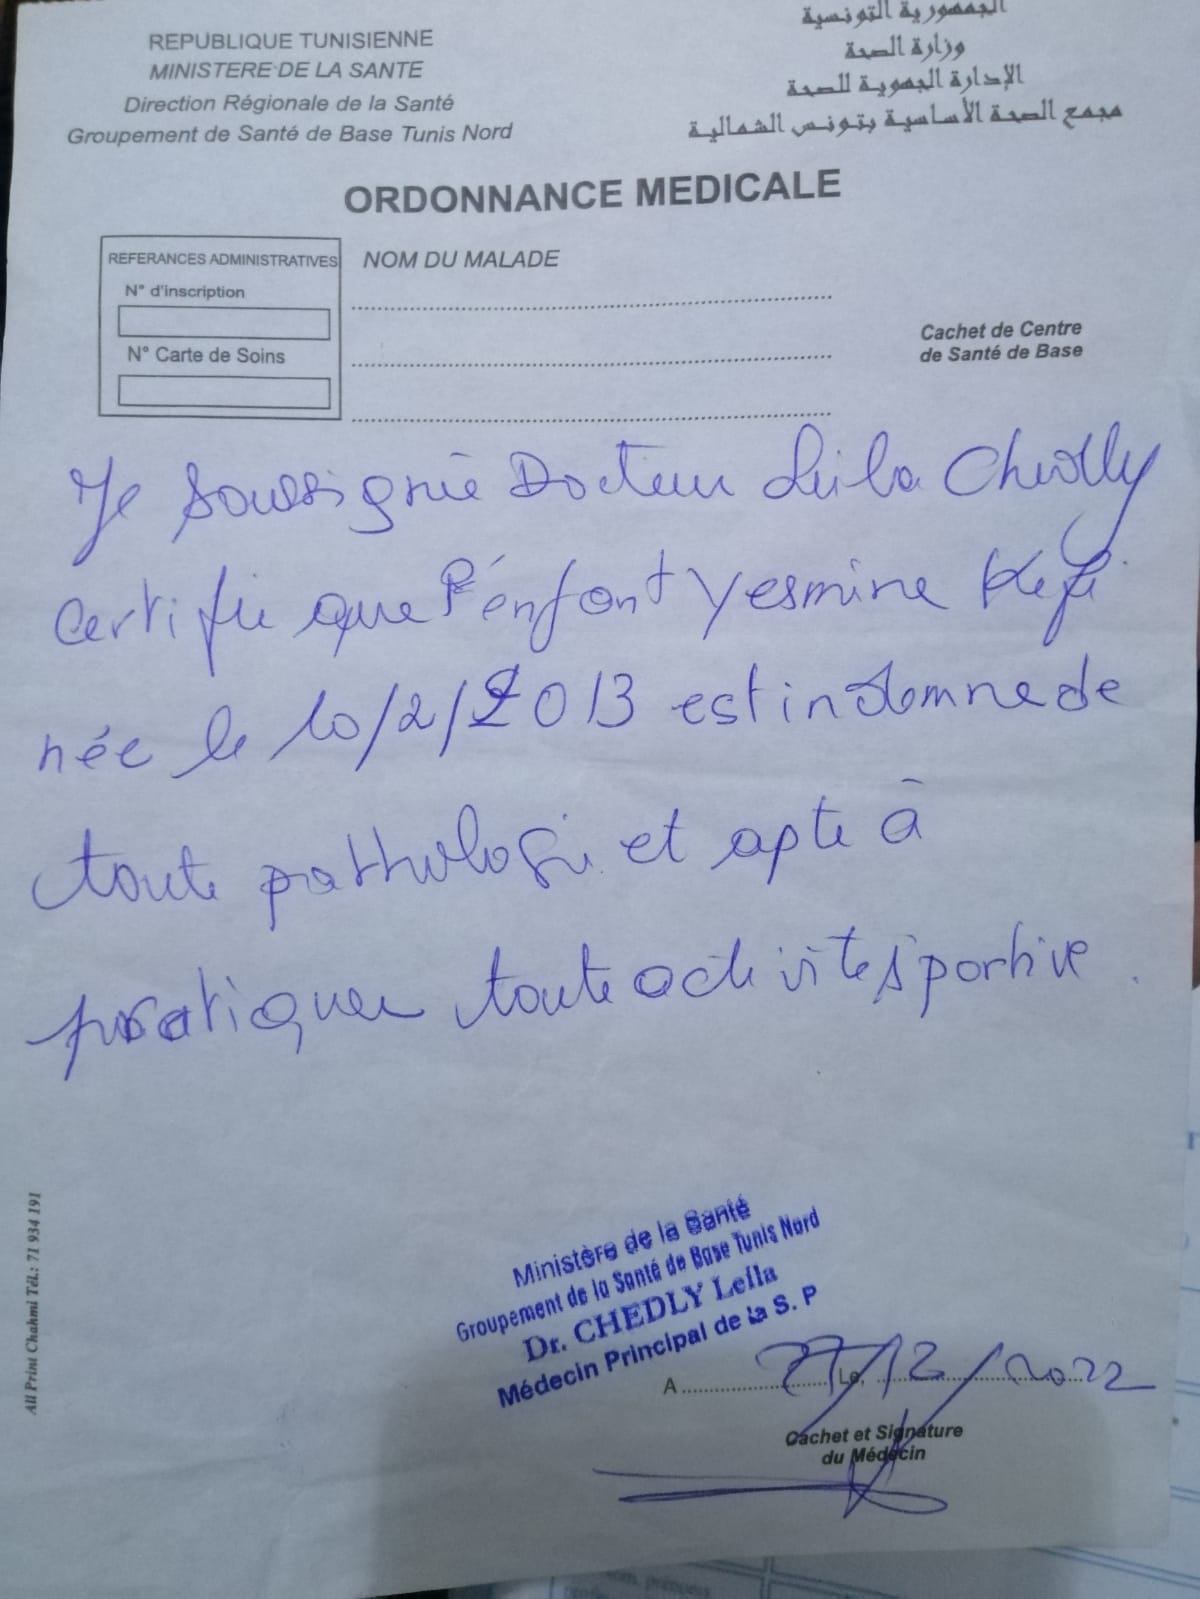 REPUBLIQUE TUNISIENNE
MINISTERE DE LA SANTE
Direction Régionale de la Santé
Groupement de Santé de Base Tunis Nord
الجمهورية التونسية
وزارة الصحة
الإدارة الجهوية للصحة
مجمع الصحة الأساسية بتونس الشمالية
ORDONNANCE MEDICALE
REFERANCES ADMINISTRATIVES
N° d'inscription
N° Carte de Soins
NOM DU MALADE
Cachet de Centre
de Santé de Base
Je soussignée Docteur Leila Chedly
certifie que l'énfant Yesmine Kefi
née le 10/2/2013 est indemne de
toute pathologi et apte à
pratiquer toute activité sportive.
All Print Chahmi Tél.: 71 934 191
Ministère de la Santé
Groupement de la Santé de Base Tunis Nord
Dr. CHEDLY Leila
Médecin Principal de la S. P
A Le, /12/2022
Cachet et Signature
du Médecin